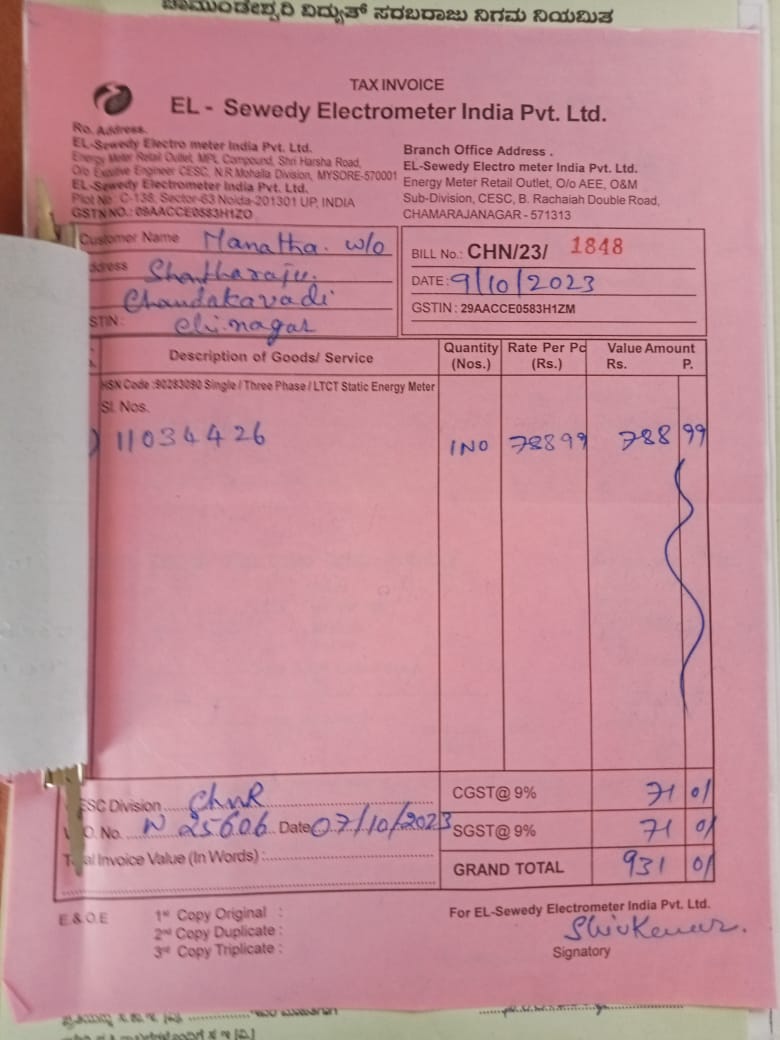 ಚಾಮುಂಡೇಶ್ವರಿ ವಿದ್ಯುತ್ ಸರಬರಾಜು ನಿಗಮ ನಿಯಮಿತ
TAX INVOICE
EL - Sewedy Electrometer India Pvt. Ltd.
Ro. Address.
EL-Sewedy Electro meter India Pvt. Ltd.
Energy Meter Retail Outlet, MPL Compound, Shri Harsha Road,
O/o Exeutive Engineer CESC, N.R Mohalla Division, MYSORE-570001
EL-Sewedy Electrometer India Pvt. Ltd.
Plot No : C-138, Sector-63 Noida-201301 UP, INDIA
GSTN NO. : 09AACCE0583H1ZO
Branch Office Address .
EL-Sewedy Electro meter India Pvt. Ltd.
Energy Meter Retail Outlet, O/o AEE, O&M
Sub-Division, CESC, B. Rachaiah Double Road,
CHAMARAJANAGAR - 571313
Customer Name Manatha. w/o
ddress Shantharaju.
Chandakavadi
STIN : Ch.nagar
BILL No.: CHN/23/ 1848
DATE : 9/10/2023
GSTIN : 29AACCE0583H1ZM
Description of Goods/ Service
Quantity (Nos.)
Rate Per Pc (Rs.)
Value Amount
Rs. P.
HSN Code :90283090 Single / Three Phase / LTCT Static Energy Meter
Sl. Nos.
) 11034426 1NO 78899 788 99
ESC Division Chnr
CGST@ 9% 71 01
O. No. N 25606 Date 07/10/2023
SGST@ 9% 71 01
al Invoice Value (In Words) :
GRAND TOTAL 931 01
E & O.E
1st Copy Original :
2nd Copy Duplicate :
3rd Copy Triplicate :
For EL-Sewedy Electrometer India Pvt. Ltd.
Shivkumar.
Signatory